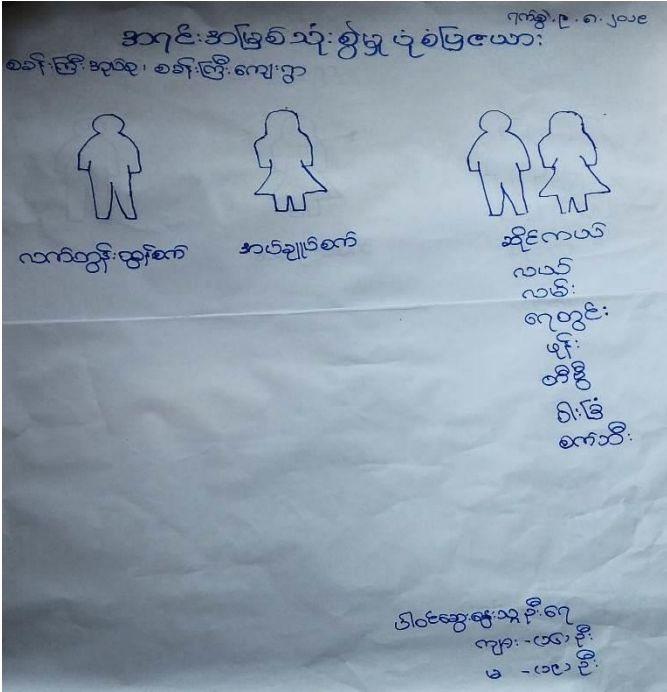 ရက်စွဲ.၉.၈.၂၀၁၉
အရင်းအမြစ်သုံးစွဲမှုပုံစံပြဇယား
စခန်းကြီးအုပ်စု၊ စခန်းကြီးကျေးရွာ
လက်တွန်းထွန်စက်
အပ်ချုပ်စက်
ဆိုင်ကယ်
လယ်
လမ်း
ရေတွင်း
ဖုန်း
တီဗွီ
ဝါးခြံ
စက်ဘီး
ပါဝင်ဆွေးနွေးသူဦးရေ
ကျား - (၁၄) ဦး
မ - (၁၉) ဦး